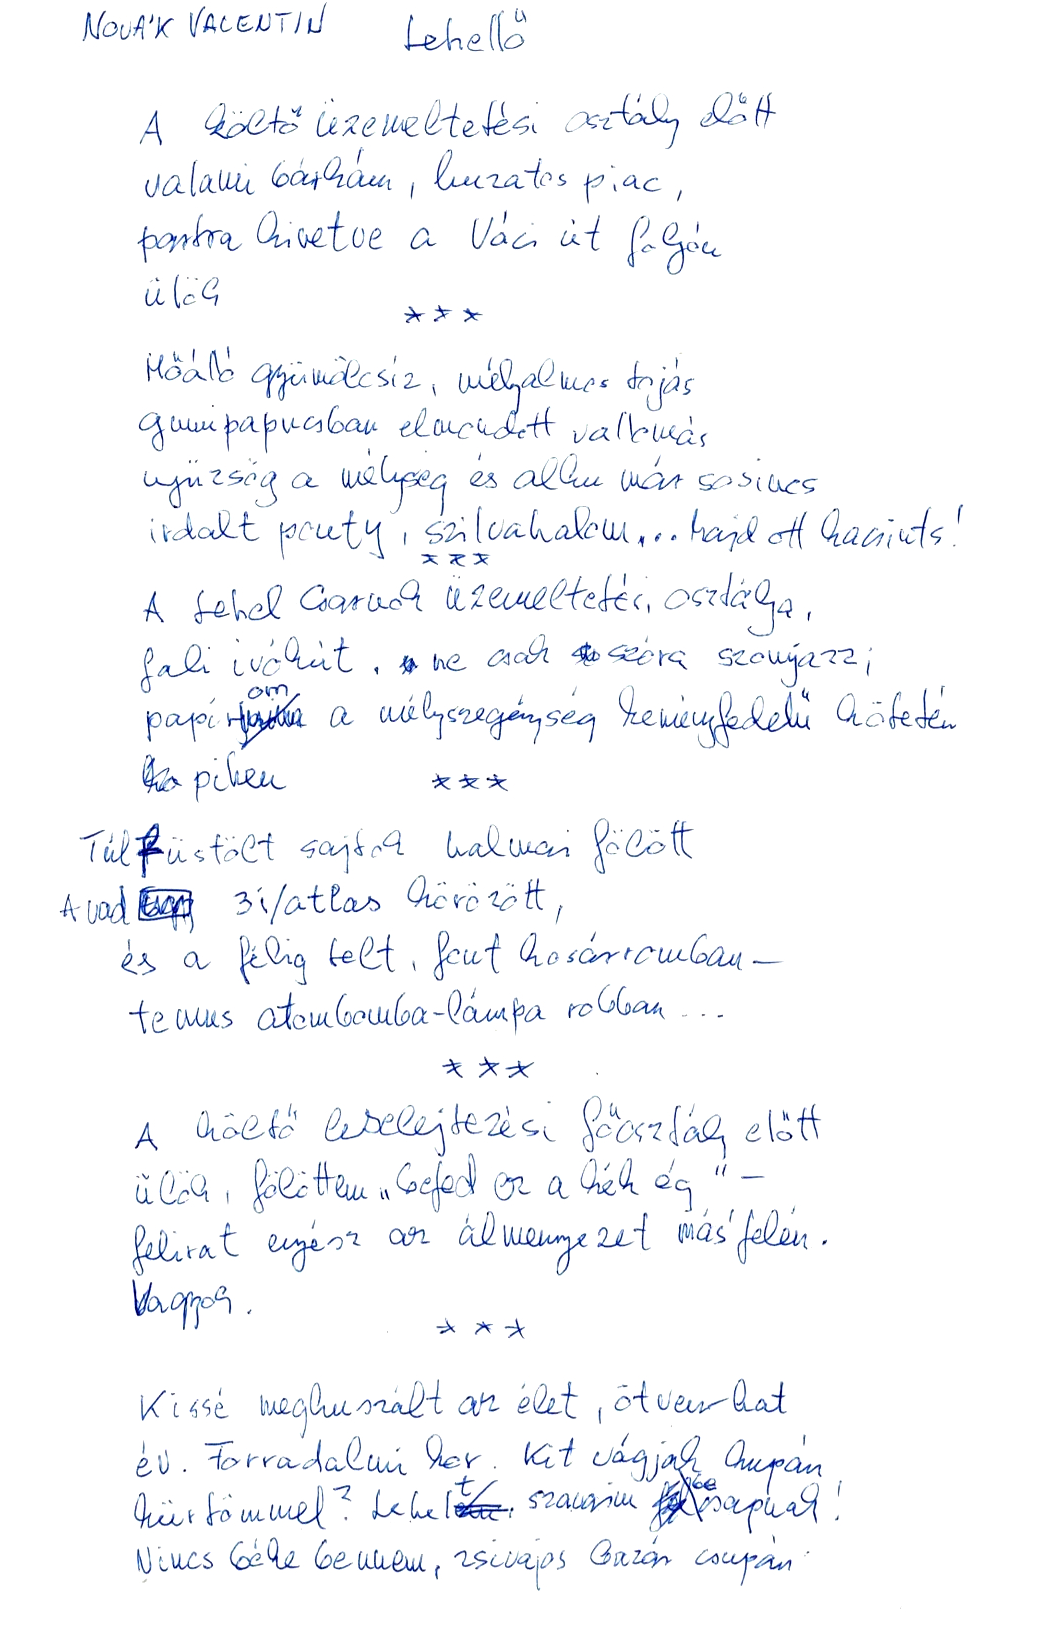 NOVÁK VALENTIN Lehellő
A költő üzemeltetési osztály előtt
valami bárkám, huzatos piac,
partra kivetve a Váci út foljón
ülök
***
Hőálló gyümölcsíz, mélyalmos tojás
gumipapucsban elmondott vallomás
nyüzsög a mélység és alku már sosincs
irdalt ponty, szilvahalom... majd ott kacsints!
***
A Lehel Csarnok üzemeltetési osztálya,
fali ivókút, ne csak szóra szomjazz;
papírom a mélyszegénység keményfedelű kötetén
pihen
***
Túlfüstölt sajtok halmai fölött
A vad 3i/atlas körözött,
és a félig telt, font kosárromban –
temus atombomba-lámpa robban...
***
A költő leselejtezési főosztály előtt
ülök, fölöttem „befed ez a kék ég" –
felirat egész az álmennyezet másfelén.
Vagyok.
***
Kissé meghuszált az élet, ötvenhat
év. Forradalmi kor. Kit vágjak kupán
kürtömmel? Lehelt, szavaim becsapnak!
Nincs béke bennem, zsivajos bazár csupán